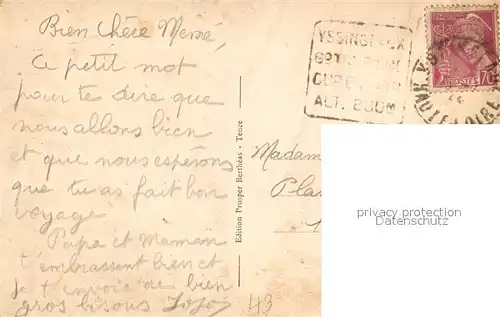 Bien Chère Mémé,
Ce petit mot
pour te dire que
nous allons bien
et que nous espérons
que tu as fait bon
voyage
Papa et Maman
t'embrassent bien et
je t'envoie de bien
gros bisous Jojo
43
Edition Prosper Berthéas - Tence
YSSINGEAUX
ALT. 800M
POSTES
70c
Madam
Pla
privacy protection
privacy protection